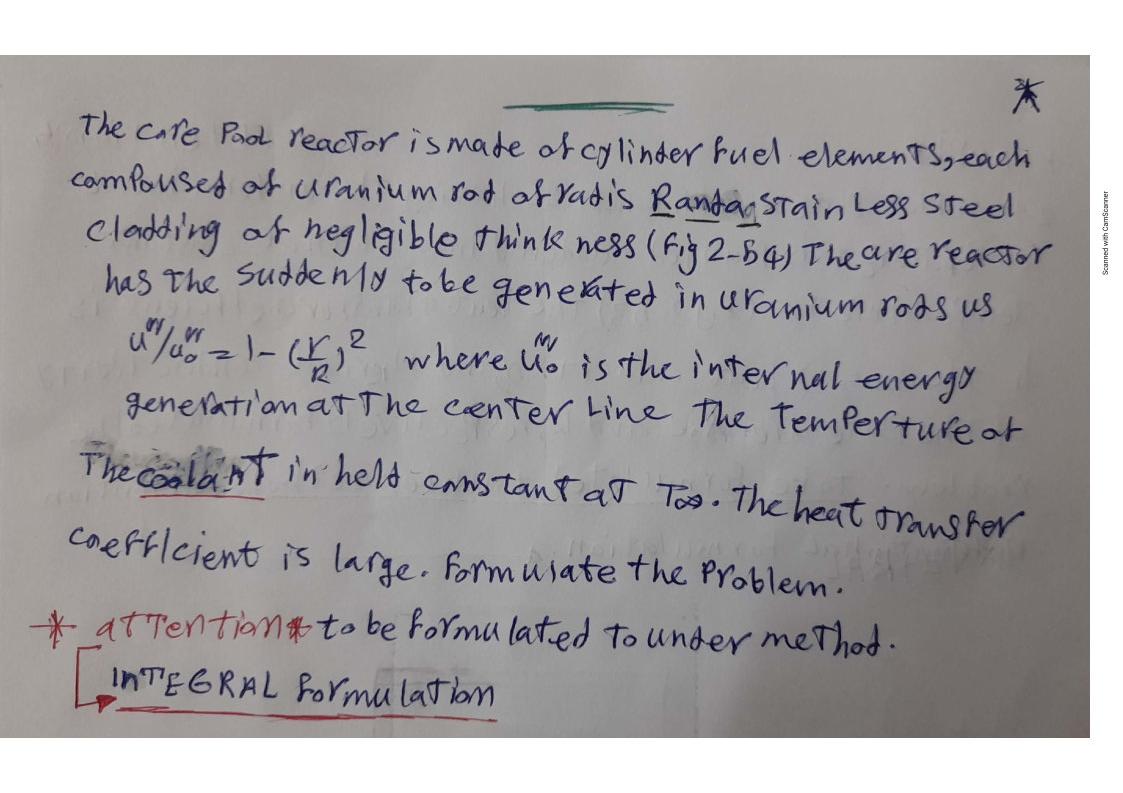 The care Pool reactor is made of cylinder fuel elements, each
compoused of uranium rod of radis R and a stain Less Steel
Cladding of negligible think ness (fig 2-54) The are reactor
has the suddenly to be generated in uranium rods us
u'''/u₀''' = 1 - (r/R)² where u₀''' is the internal energy
generation at The center Line The temperture of
The coolant in held constant at T∞. The heat transfer
coefficient is large. Formulate the Problem.
* attention* to be formulated to under method.
INTEGRAL formulation
Scanned with CamScanner